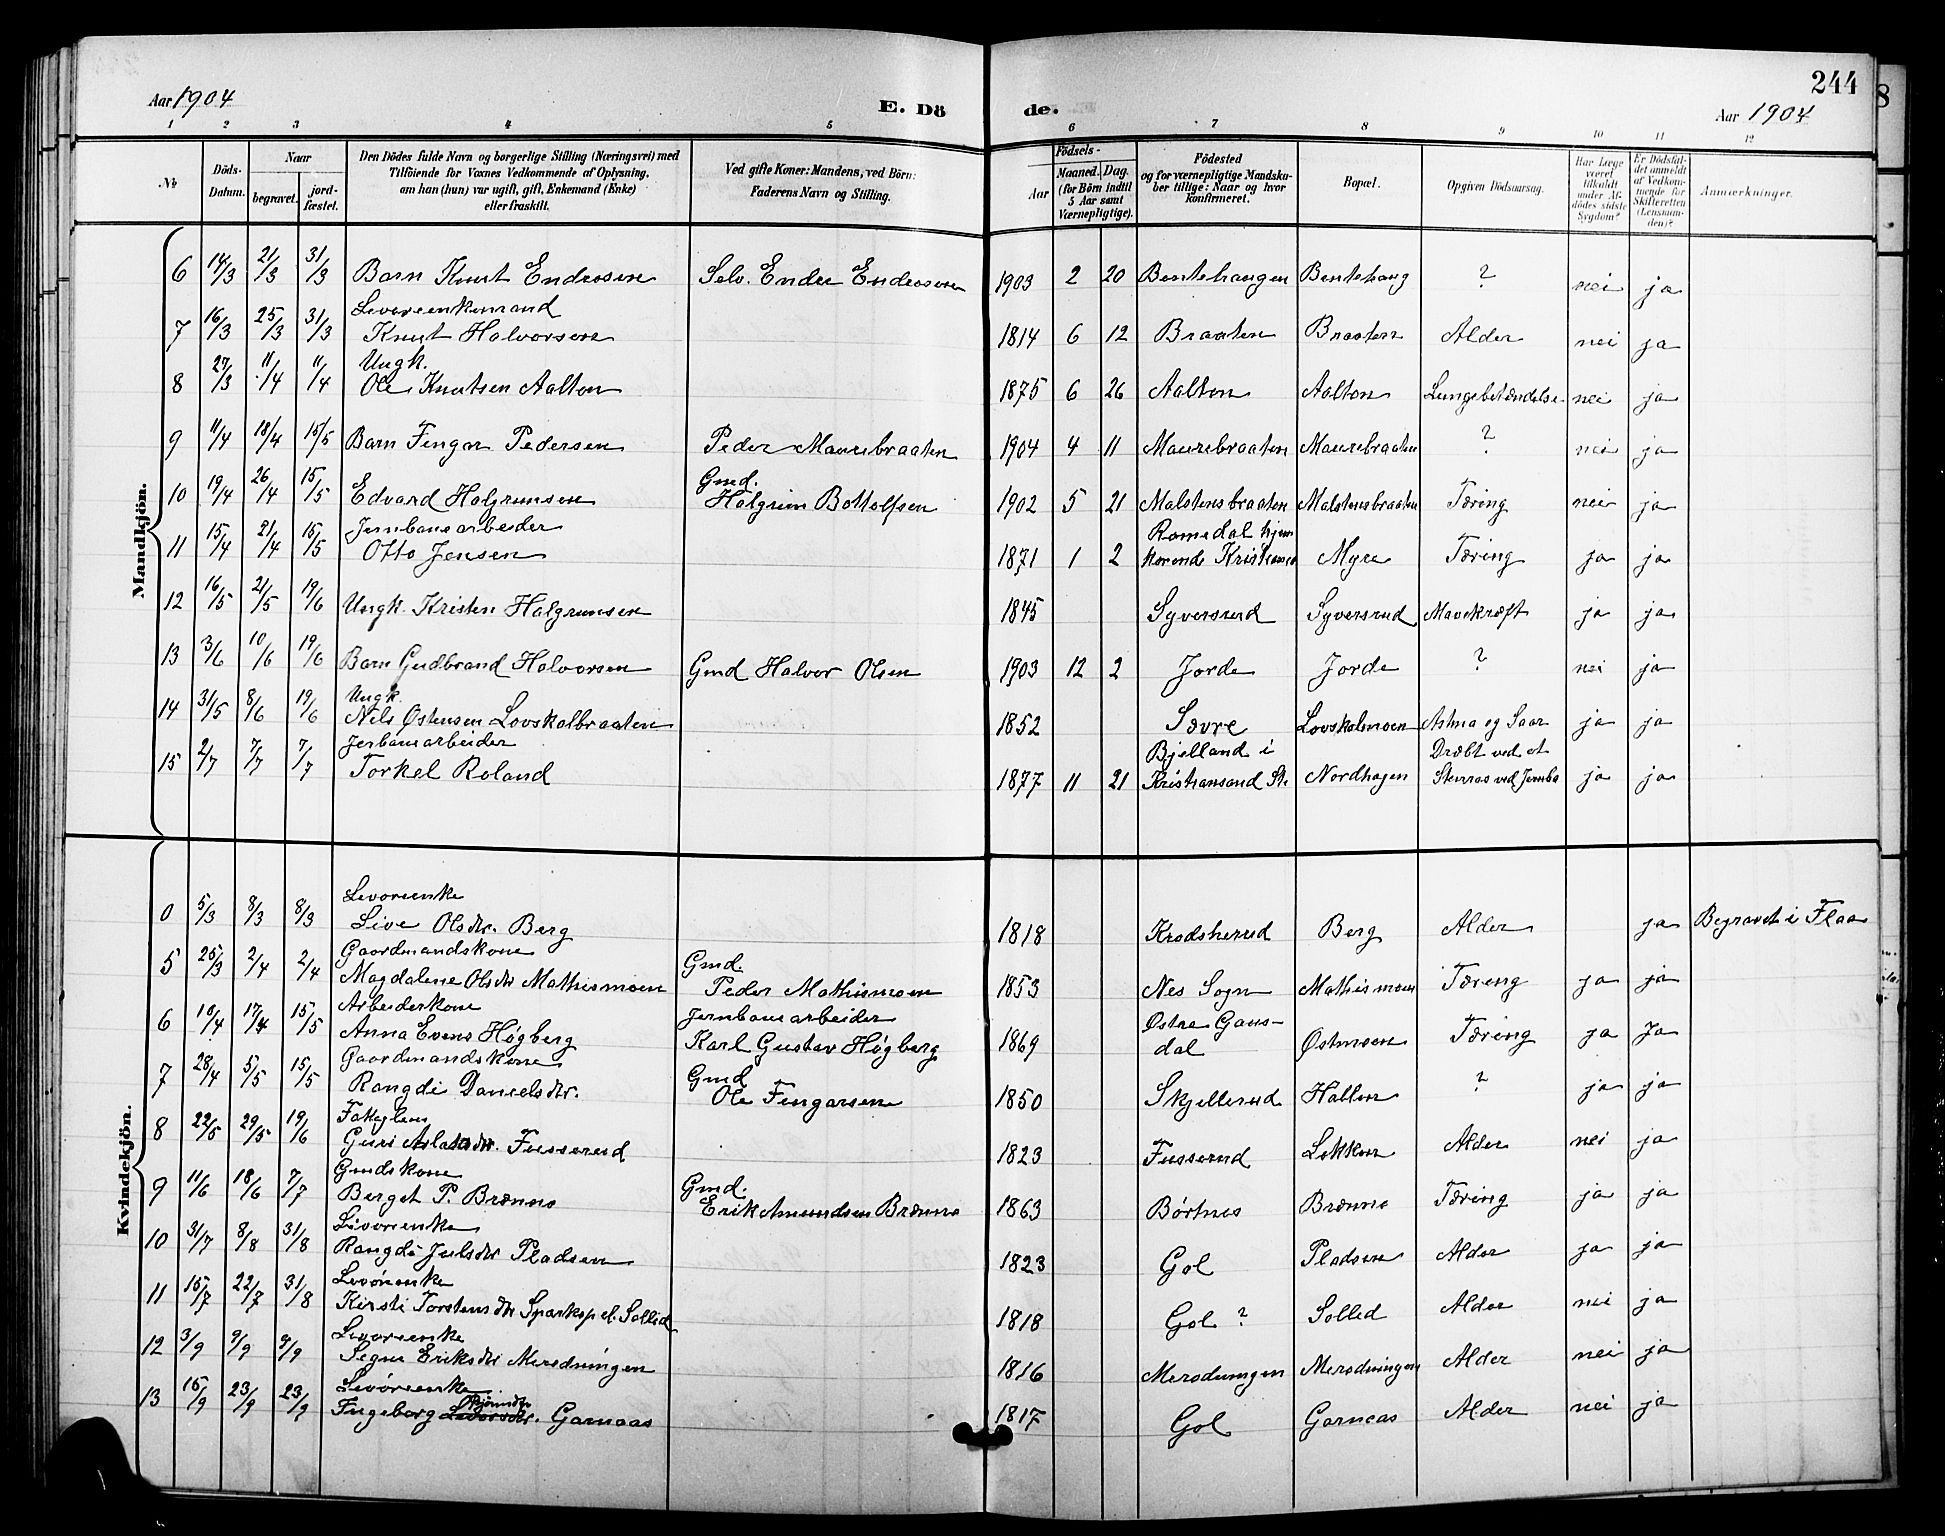 Aar 1904
E. Dö de.
244
Aar 1904
8
1 2 3 4 5 6 7 8 9 10 11 12
№
Döds-
Datum.
Naar
begravet.
jord-
fæstet.
Den Dödes fulde Navn og borgerlige Stilling (Næringsvei) med
Tilföiende for Voxnes Vedkommende af Oplysning,
om han (hun) var ugift, gift, Enkemand (Enke)
eller fraskilt.
Ved gifte Koner: Mandens, ved Börn:
Faderens Navn og Stilling.
Födsels-
Aar
Maaned.
Dag
(for Börn indtil
5 Aar samt
Værnepligtige).
Födested
og for værnepligtige Mandska-
ber tillige: Naar og hvor
konfirmeret.
Bopæl.
Opgiven Dödsaarsag.
Har Læge
været
tilkaldt
under Af-
dödes sidste
Sygdom?
Er Dödsfal-
det anmeldt
af Vedkom-
mende for
Skifteretten
(Lensman-
den)?
Anmærkninger.
Mandkjön.
6 14/3 21/3 31/3 Barn Knut Endresen Selv. Endre Endresen 1903 2 20 Bentehaugen Bentehaug ? nei ja
Levøreenkemand
7 16/3 25/3 31/3 Knut Halvorsen 1814 6 12 Braaten Braaten Alder nei ja
Ungk.
8 27/3 11/4 11/4 Ole Knutsen Aalton 1875 6 26 Aalton Aalton Lungebetændelse nei ja
9 11/4 18/4 15/5 Barn Fingar Pedersen Peder Maurebraaten 1904 4 11 Maurebraaten Maurebraaten ? nei ja
Gmd.
10 19/4 26/4 15/5 Edvard Halgrimsen Halgrim Bottolfsen 1902 5 21 Malstensbraaten Malstensbraaten Tæring nei ja
Jernbanearbeider Romedal hjem
11 15/4 21/4 15/5 Otto Jensen 1871 1 2 Myre Tæring ja ja
12 16/5 21/5 19/6 Ungk. Kristen Halgrimsen 1845 Syversrud Syversrud Mavekræft ja ja
13 3/6 10/6 19/6 Barn Gudbrand Halvorsen Gmd Halvor Olsen 1903 12 2 Jorde Jorde ? nei ja
Ungk.
14 31/5 8/6 19/6 Nels Østensen Lovskolbraaten 1852 Sævre Lovskolmoen Astma og Saar ja ja
Jerbanearbeider Bjelland i Dræbt ved et
15 2/7 7/7 7/7 Torkel Roland 1877 11 21 Kristiansand St. Nordhagen Stenras ved Jernba ja ja
Kvindekjön.
Levøreenke
0 5/3 8/3 8/3 Live Olsdtr. Berg 1818 Krodsherud Berg Alder ja Begravet i Flaa
Gaardmandskone Gmd.
5 25/3 2/4 2/4 Magdalene Olsdtr Mathismoen Peder Mathismoen 1853 Nes Sogn Mathismoen Tæring ja ja
Arbeiderkone Jernbanearbeider Østre Gaus-
6 10/4 17/4 15/5 Anna Evens Høgberg Karl Gustav Høgberg 1869 dal Østmoen Tæring ja Ja
Gaardmandskone Gmd
7 28/4 5/5 15/5 Rangdi Danielsdtr. Ole Fingarsen 1850 Skjellerud Hallen ? ja ja
8 22/5 29/5 19/6 Guri Aslaksdtr. Fusserud 1823 Fusserud Løkken Alder nei ja
Gmdskone Gmd.
9 11/6 18/6 7/7 Berget P. Brænno Erik Amundsen Brænno 1863 Børtnes Brænno Tæring ja ja
Levøreenke
10 31/7 8/8 31/8 Rangdi Julsdtr Pladsen 1823 Gol Pladsen Alder ja ja
Levøreenke
11 15/7 22/7 31/8 Kirsti Torstensdtr Sparksp el. Sollid 1818 Gol ? Solled Alder nei ja
Levøreenke
12 3/9 9/9 9/9 Segne Eriksdtr Merodningen 1816 Merodningen Merodningen Alder nei ja
Levøreenke
Bjørnsdtr
13 15/9 23/9 23/9 Ingeborg Levorsdtr. Garnaas 1817 Gol Garneas Alder nei ja